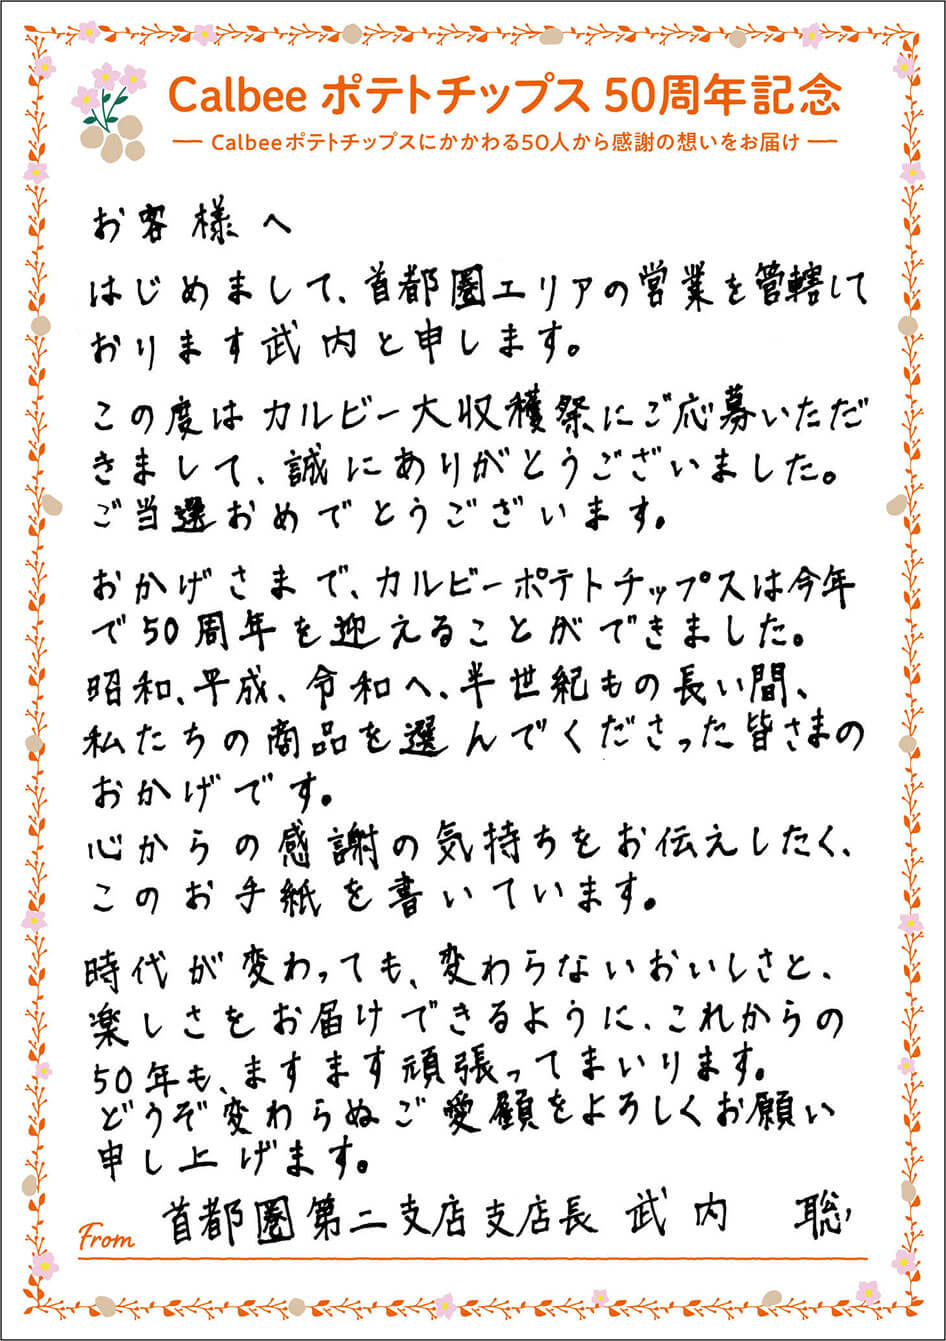 Calbee ポテトチップス 50周年記念
― Calbeeポテトチップスにかかわる50人から感謝の想いをお届け ―
お客様へ
はじめまして、首都圏エリアの営業を管轄して
おります武内と申します。
この度はカルビー大収穫祭にご応募いただ
きまして、誠にありがとうございました。
ご当選おめでとうございます。
おかげさまで、カルビーポテトチップスは今年
で50周年を迎えることができました。
昭和、平成、令和へ、半世紀もの長い間、
私たちの商品を選んでくださった皆さまの
おかげです。
心からの感謝の気持ちをお伝えしたく、
このお手紙を書いています。
時代が変わっても、変わらないおいしさと、
楽しさをお届けできるように、これからの
50年も、ますます頑張ってまいります。
どうぞ変わらぬご愛顧をよろしくお願い
申し上げます。
From 首都圏第二支店支店長 武内 聡